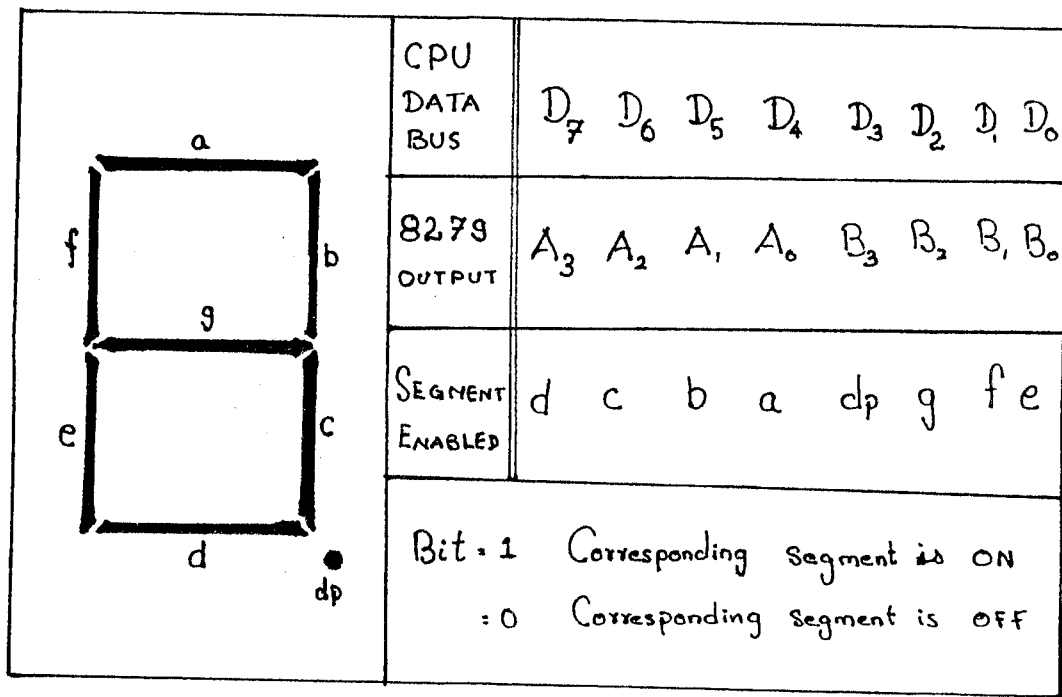 a
f
b
g
e
c
d
dp
CPU
DATA
BUS
D₇ D₆ D₅ D₄ D₃ D₂ D₁ D₀
8279
OUTPUT
A₃ A₂ A₁ A₀ B₃ B₂ B₁ B₀
SEGMENT
ENABLED
d c b a dp g f e
Bit = 1 Corresponding Segment is ON
= 0 Corresponding Segment is OFF